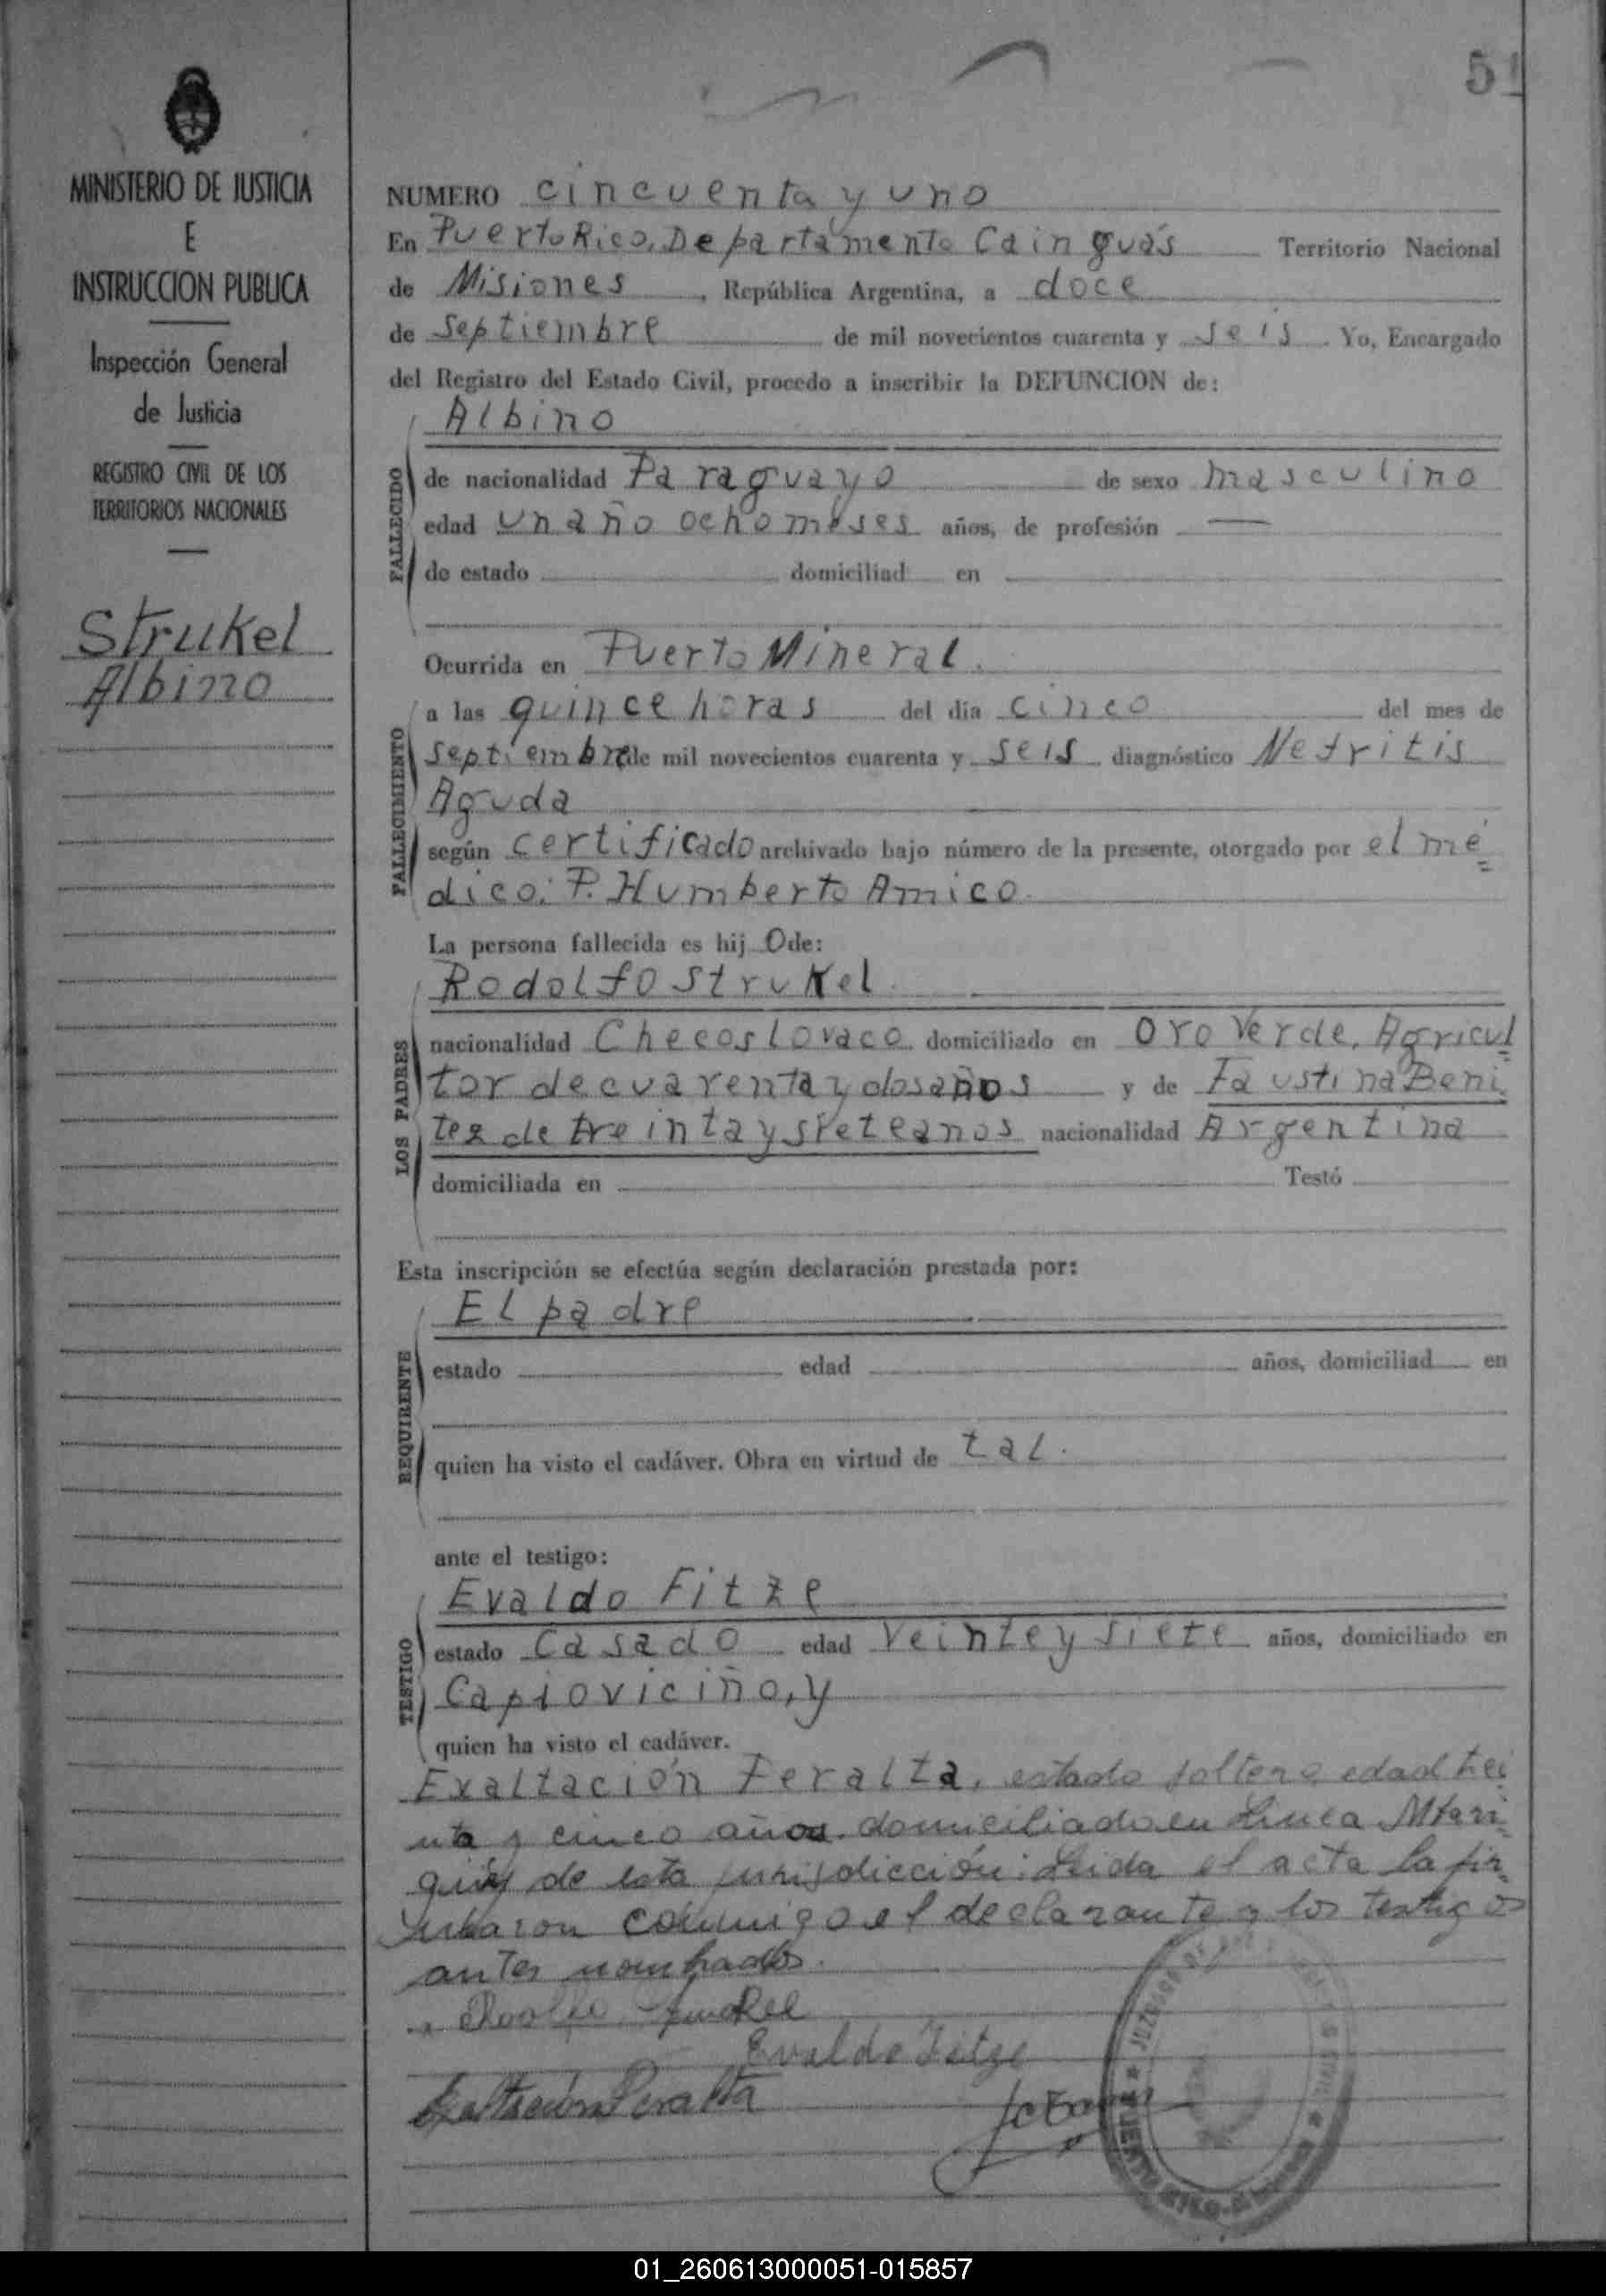 51
MINISTERIO DE JUSTICIA
E
INSTRUCCION PUBLICA
Inspección General
de Justicia
REGISTRO CIVIL DE LOS
TERRITORIOS NACIONALES
Strukel
Albino
NUMERO cincuenta y uno
En Puerto Rico, Departamento Cainguás Territorio Nacional
de Misiones, República Argentina, a doce
de septiembre de mil novecientos cuarenta y seis. Yo, Encargado
del Registro del Estado Civil, procedo a inscribir la DEFUNCION de:
Albino
FALLECIDO
de nacionalidad Paraguayo de sexo masculino
edad un año ocho meses años, de profesión —
de estado domiciliad en
Ocurrida en Puerto Mineral.
FALLECIMIENTO
a las quince horas del día cinco del mes de
septiembre de mil novecientos cuarenta y seis diagnóstico Nefritis
Aguda
según certificado archivado bajo número de la presente, otorgado por el mé=
dico: P. Humberto Amico.
La persona fallecida es hij o de:
Rodolfo Strukel.
LOS PADRES
nacionalidad Checoslovaco domiciliado en Oro Verde, Agricul=
tor de cuarenta y dos años y de Faustina Beni=
tez de treinta y siete años nacionalidad Argentina
domiciliada en Testó
Esta inscripción se efectúa según declaración prestada por:
El padre
REQUIRENTE
estado edad años, domiciliad en
quien ha visto el cadáver. Obra en virtud de tal.
ante el testigo:
Evaldo Fitze
TESTIGO
estado Casado edad Veinte y siete años, domiciliado en
Capioviciño, y
quien ha visto el cadáver.
Exaltación Peralta, estado soltero edad trei
nta y cinco años domiciliado en Linea
de esta jurisdicción: Leida el acta la fir=
maron conmigo el declarante y los testigos
antes nombrados.
Rodolfo Strukel
Evaldo Fitze
Exaltación Peralta
PUERTO RICO
01_260613000051-015857